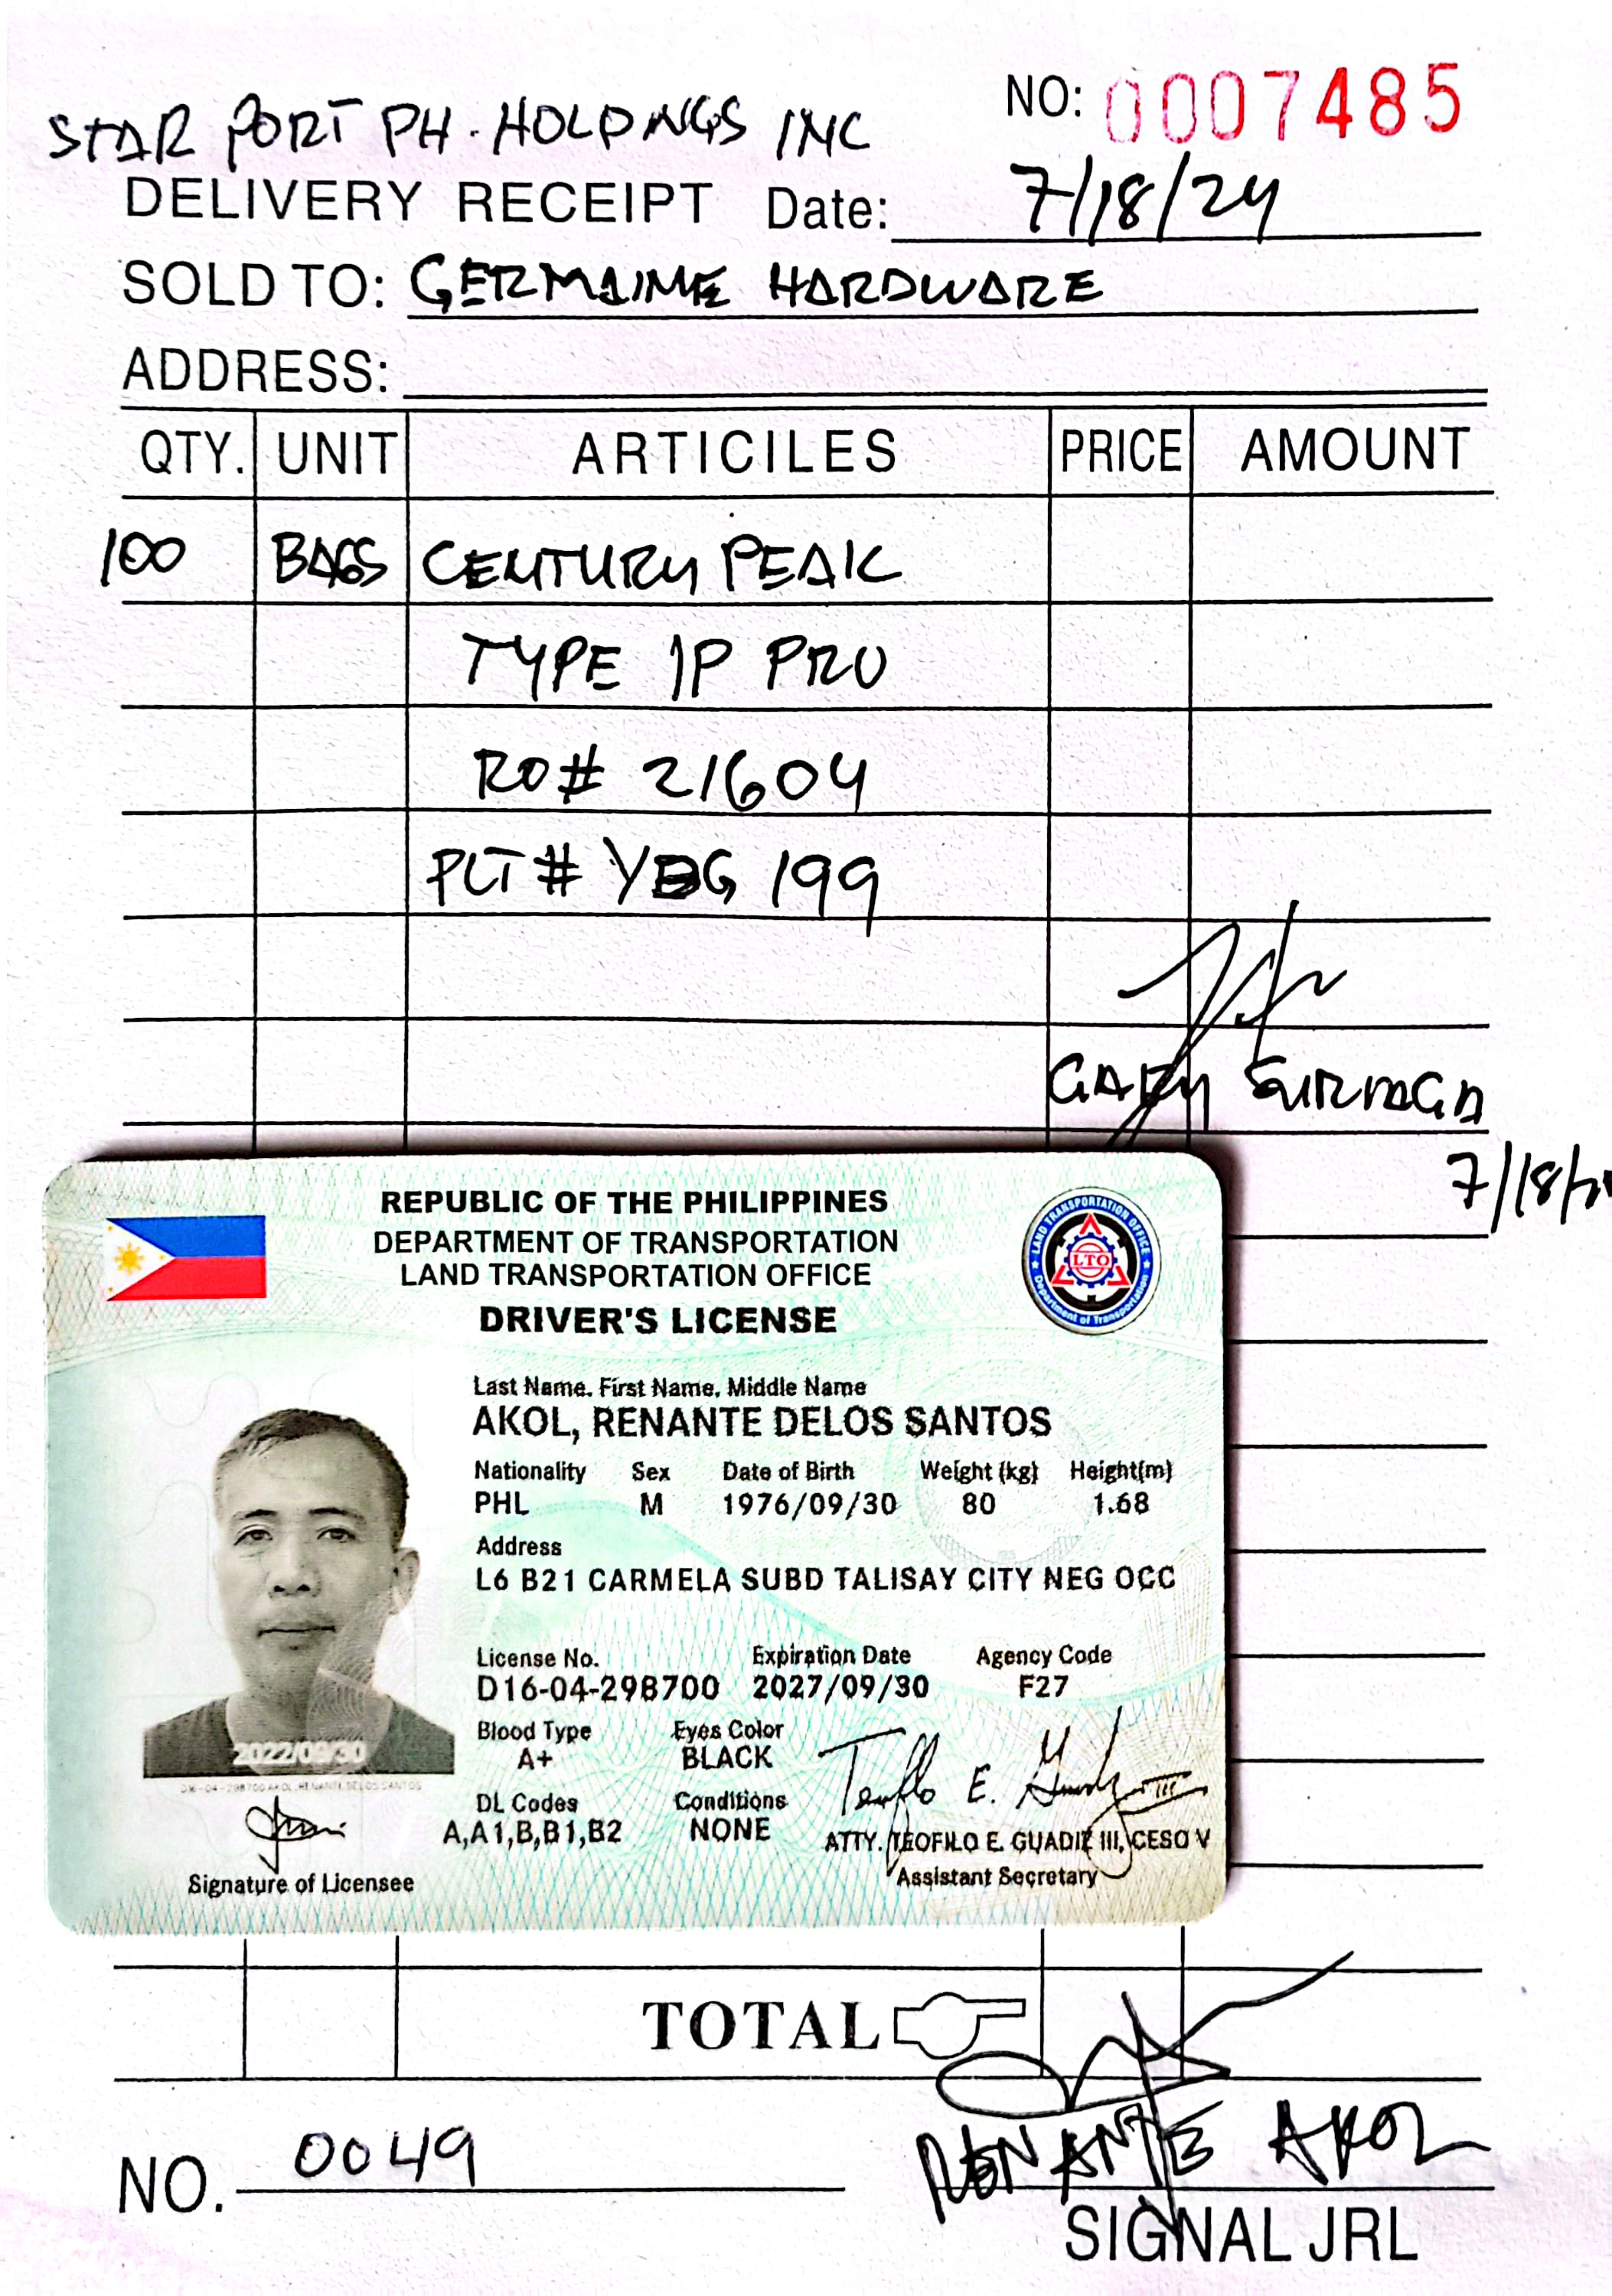 NO: 0007485
STAR PORT PH. HOLDINGS INC
DELIVERY RECEIPT Date: 7/18/24
SOLD TO: GERMAINE HARDWARE
ADDRESS:
QTY. UNIT ARTICILES PRICE AMOUNT
100 BAGS CENTURY PEAK
TYPE 1P PRO
RO# 21604
PLT# YBG 199
GARY
7/18/
REPUBLIC OF THE PHILIPPINES
DEPARTMENT OF TRANSPORTATION
LAND TRANSPORTATION OFFICE
DRIVER'S LICENSE
LAND TRANSPORTATION OFFICE
LTO
Department of Transportation
Last Name, First Name, Middle Name
AKOL, RENANTE DELOS SANTOS
Nationality Sex Date of Birth Weight (kg) Height(m)
PHL M 1976/09/30 80 1.68
Address
L6 B21 CARMELA SUBD TALISAY CITY NEG OCC
License No. Expiration Date Agency Code
D16-04-298700 2027/09/30 F27
Blood Type Eyes Color
A+ BLACK
2022/09/30
D16-04-298700 AKOL, RENANTE DELOS SANTOS
DL Codes Conditions
A,A1,B,B1,B2 NONE
Teofilo E. Guadiz III
ATTY. TEOFILO E. GUADIZ III, CESO V
Signature of Licensee Assistant Secretary
TOTAL
NO. 0049 RENANTE AKOL
SIGNAL JRL